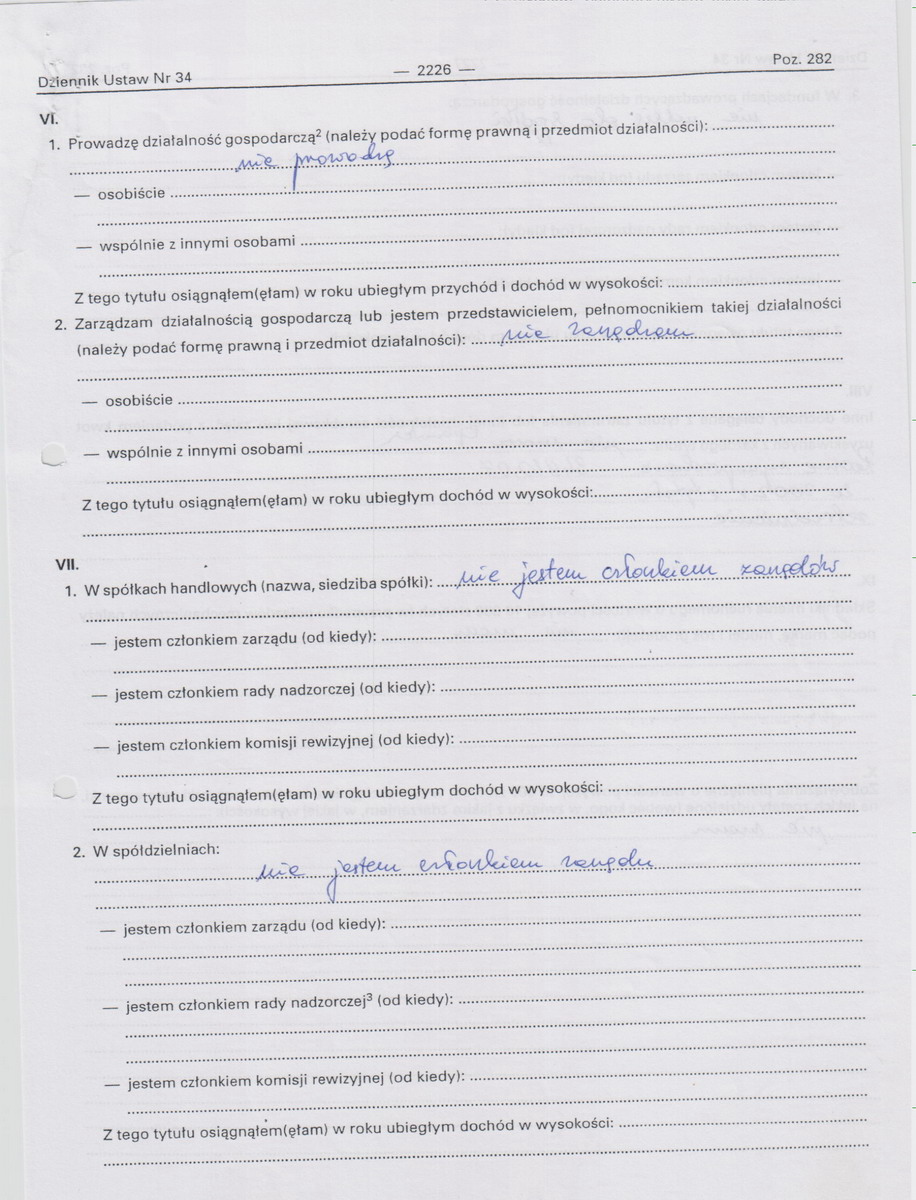 Dziennik Ustaw Nr 34 — 2226 — Poz. 282
VI.
1. Prowadzę działalność gospodarczą² (należy podać formę prawną i przedmiot działalności):
nie prowadzę
— osobiście
— wspólnie z innymi osobami
Z tego tytułu osiągnąłem(ęłam) w roku ubiegłym przychód i dochód w wysokości:
2. Zarządzam działalnością gospodarczą lub jestem przedstawicielem, pełnomocnikiem takiej działalności
(należy podać formę prawną i przedmiot działalności): nie zarządzam
— osobiście
— wspólnie z innymi osobami
Z tego tytułu osiągnąłem(ęłam) w roku ubiegłym dochód w wysokości:
VII.
1. W spółkach handlowych (nazwa, siedziba spółki): nie jestem członkiem zarządów
— jestem członkiem zarządu (od kiedy):
— jestem członkiem rady nadzorczej (od kiedy):
— jestem członkiem komisji rewizyjnej (od kiedy):
Z tego tytułu osiągnąłem(ęłam) w roku ubiegłym dochód w wysokości:
2. W spółdzielniach:
nie jestem członkiem zarządu
— jestem członkiem zarządu (od kiedy):
— jestem członkiem rady nadzorczej³ (od kiedy):
— jestem członkiem komisji rewizyjnej (od kiedy):
Z tego tytułu osiągnąłem(ęłam) w roku ubiegłym dochód w wysokości: